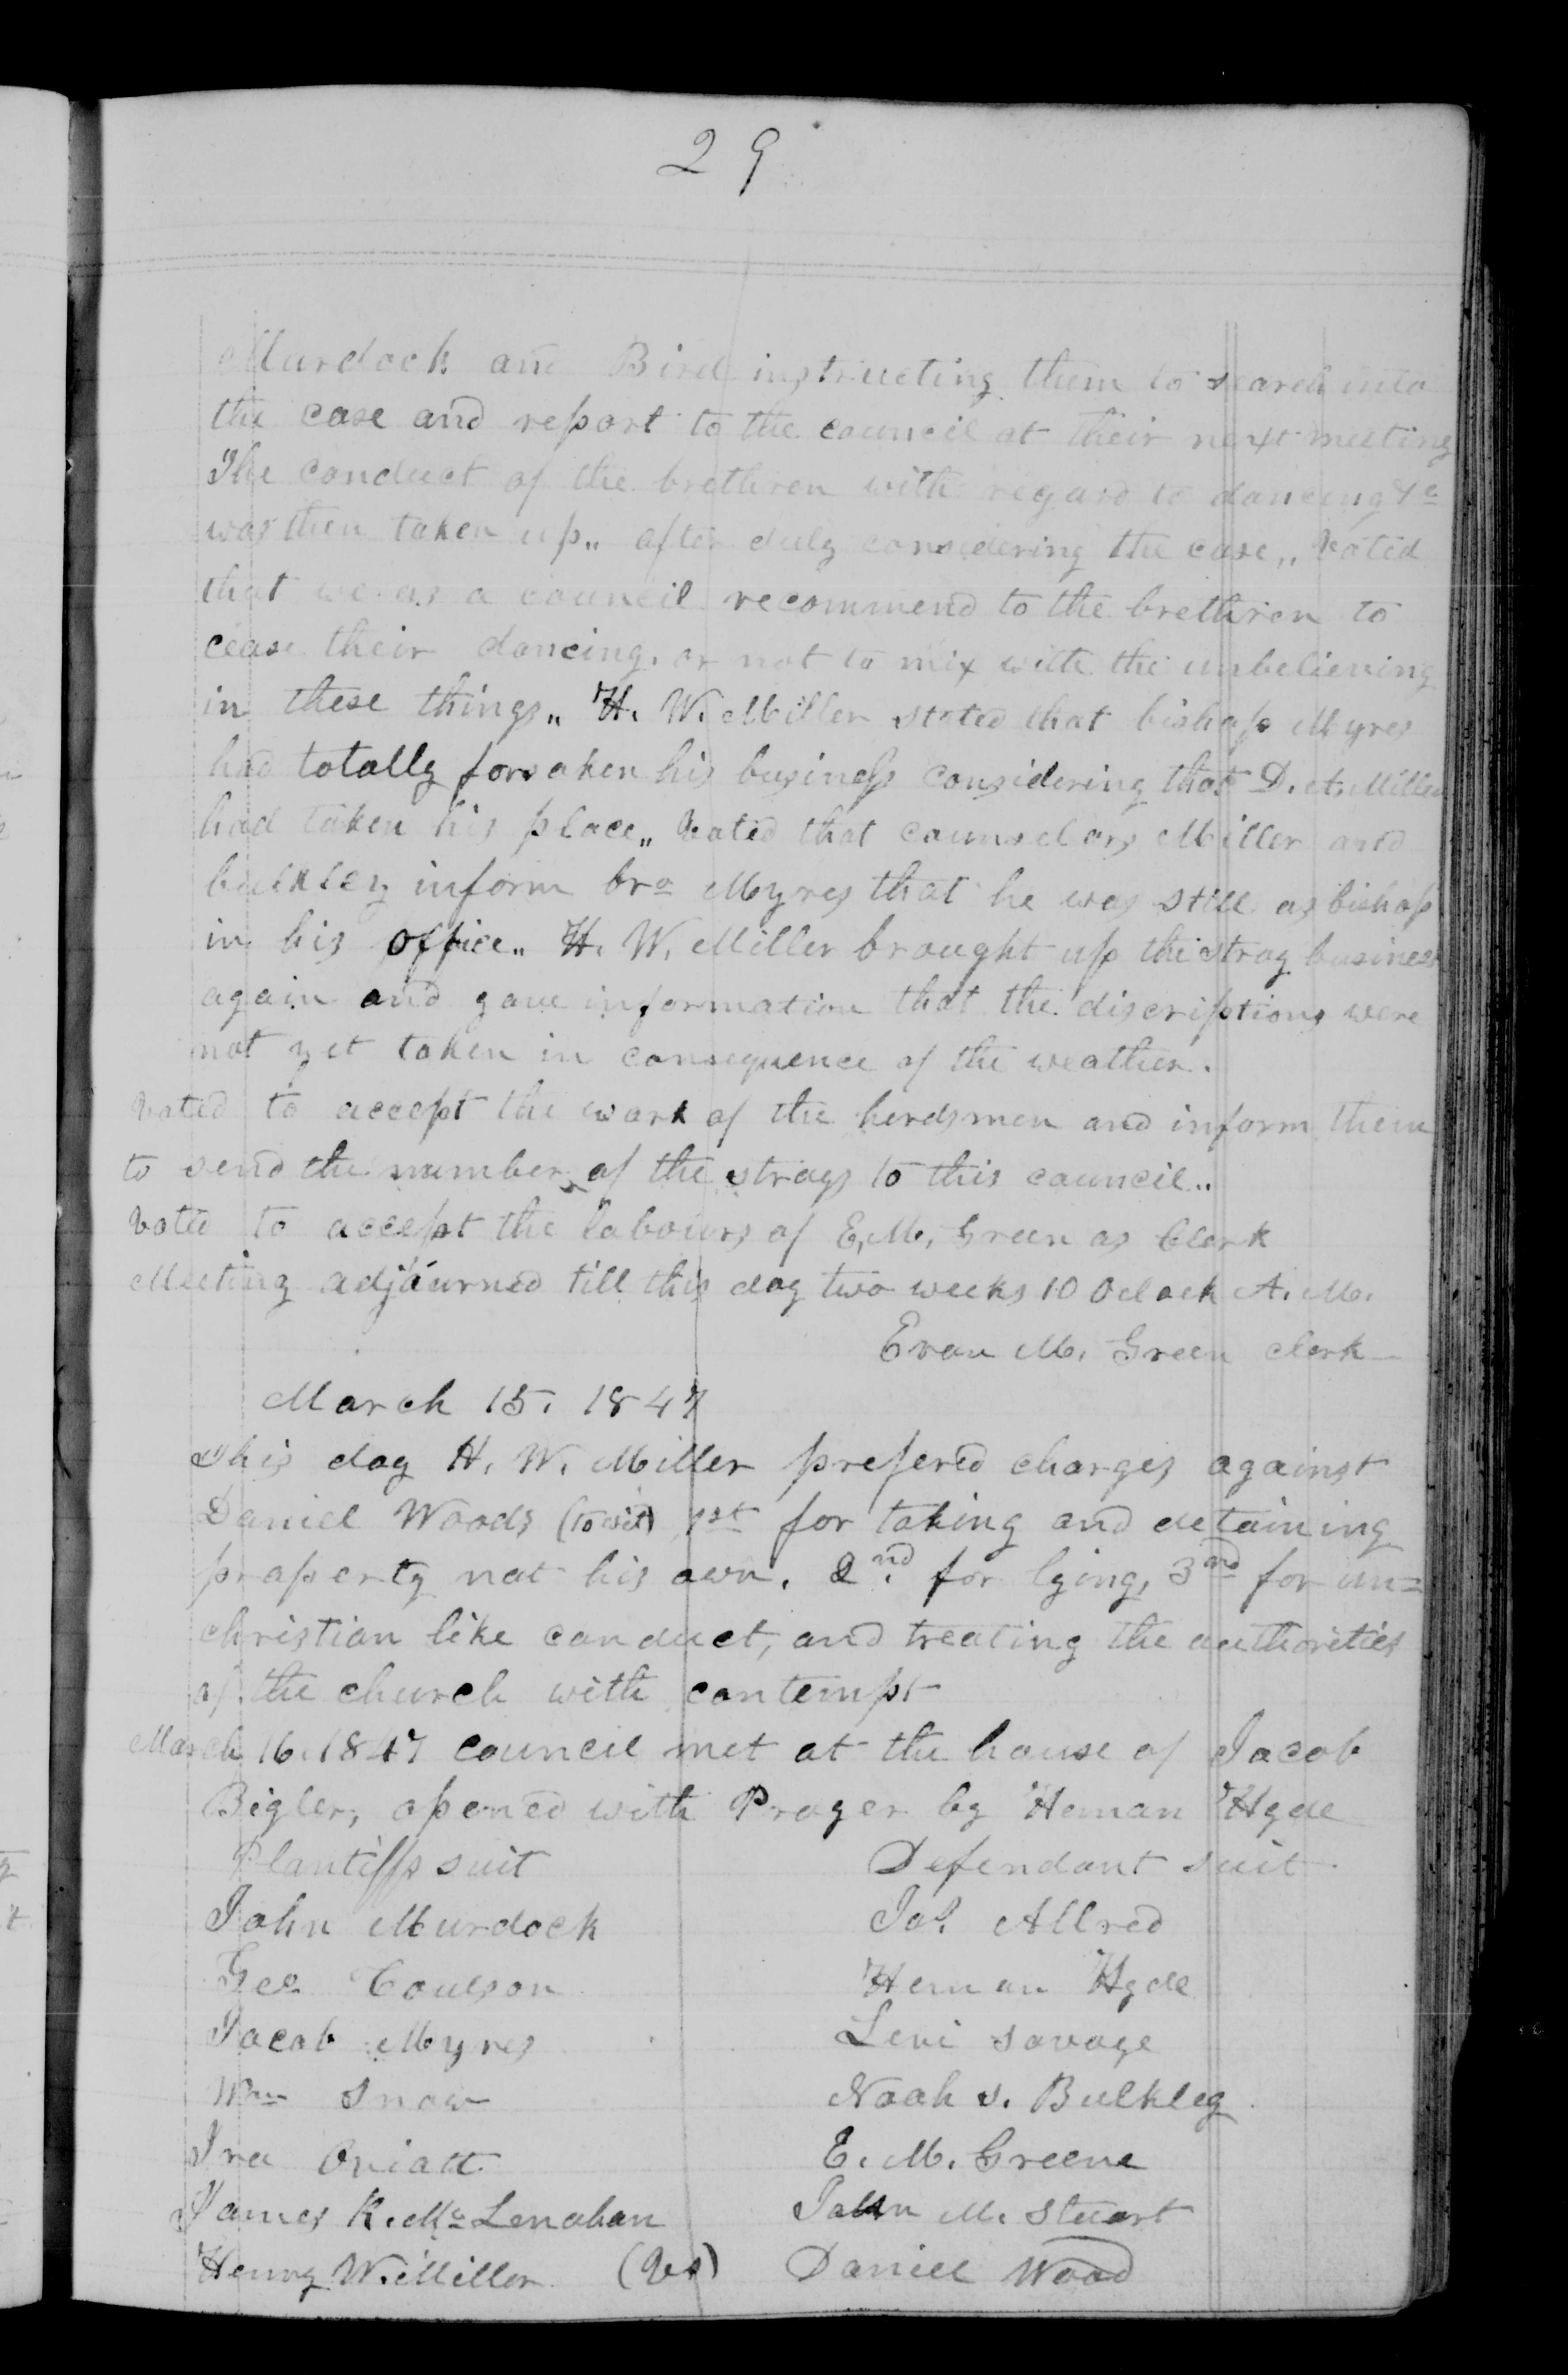 29
Murdock and Bird instructing them to search into
the case and report to the council at their next meeting
The conduct of the brethren with regard to dancing &c
was then taken up,, after duly considering the case,, Voted
that we as a council recommend to the brethren to
cease their dancing, or not to mix with the unbelieving
in these things,, H. W. Miller stated that bishop Myres
had totally forsaken his business considering that D. A. Miller
had taken his place,, Voted that counselors Miller and
bulkley inform bro Myres that he was still as bishop
in his office,, H. W. Miller brought up the stray business
again and gave information that the discriptions were
not yet taken in consequence of the weather.
Voted to accept the work of the herdsmen and inform them
to send the number of the strays to this council..
Voted to accept the labours of E. M. Green as Clerk
Meeting adjourned till this day two weeks 10 Oclock A. M.
Evan M. Green clerk
March 15, 1847
This day H. W. Miller prefered charges against
Daniel Woods (to wit) 1st for taking and detaining
property not his own. 2nd. for lying, 3nd for un=
christian like conduct, and treating the authorities
of the church with contempt
March 16. 1847 council met at the house of Jacob
Bigler, opened with Prayer by Heman Hyde
Plantiffs suit Defendant suit
John Murdock Jas. Allred
Geo Coulson Heman Hyde
Jacob Myres Levi Savage
Wm Snow Noah S. Bulkley
Ira Oviatt E. M. Greene
James K. Mc Lenahan John M. Stuart
Henry W. Miller (Vs) Daniel Wood